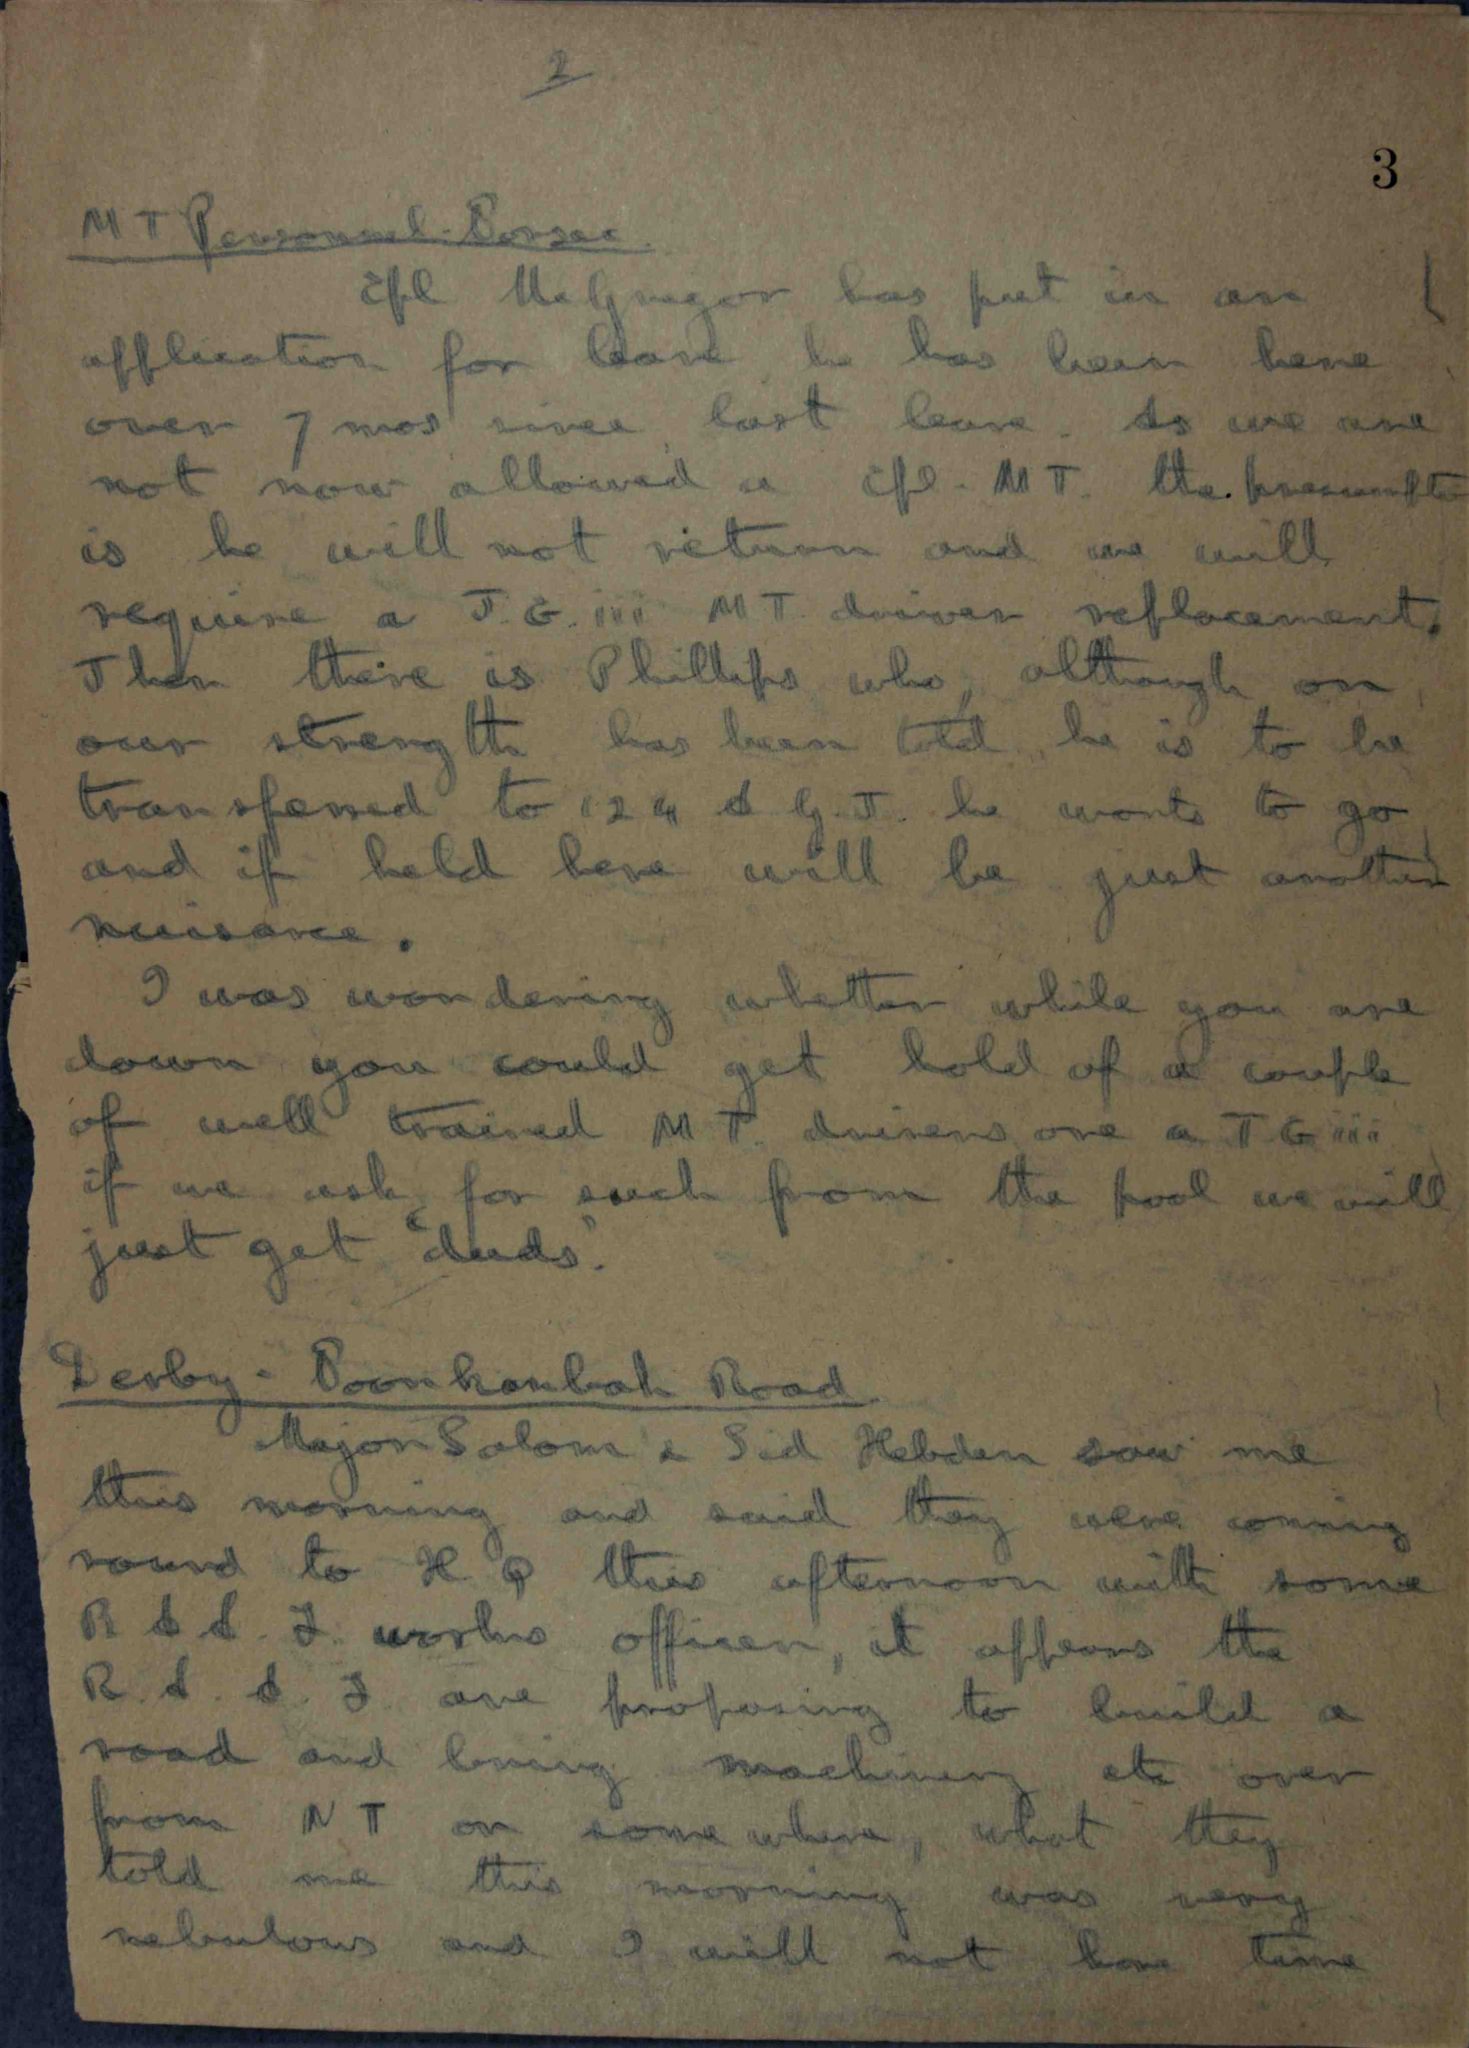 2
3
MT Personnel - Borsec.
Cpl McGregor has put in an
application for leave he has been here
over 7 mos since last leave. As we are
not now allowed a Cpl - MT. the presumption
is he will not return and we will
require a T.G. iii MT. driver replacement.
Then there is Phillips who, although on
our strength has been told he is to be
transferred to 124 A G.T. he wants to go
and if held here will be just another
nuisance.
I was wondering whether while you are
down you could get hold of a couple
of well trained MT. drivers one a TG iii
if we ask for such from the pool we will
just get 'duds'.
Derby - Noonkanbah Road
Major Salom & Sid Hebden saw me
this morning and said they were coming
round to H Q this afternoon with some
R A A. F. works officer, it appears the
R. A. A. F. are proposing to build a
road and bring machinery etc over
from NT or somewhere, what they
told me this morning was very
nebulous and I will not have time